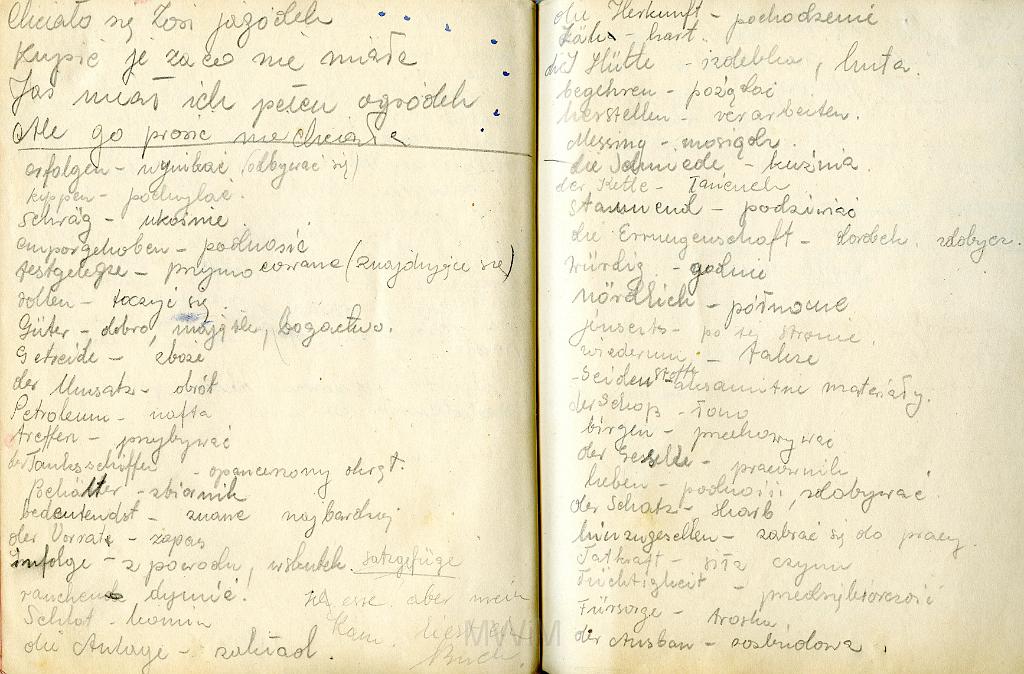 Chciało się Zosi jagódek
Kupić je za co nie miała
Jaś miał ich pełen ogródek
Ale go prosić nie chciała
erfolgen - wynikać (odbywać się)
kippen - pochylać.
schräg - ukośnie.
emporgehoben - podnosić
festgelegte - przymocowane (znajdujące się)
rollen - toczyć się.
Güter - dobra, majątek, bogactwo.
Getreide - zboże
der Umsatz - obrót
Petroleum - nafta
treffen - przybywać
der Tanksschiffen - opancerzony okręt.
Behälter - zbiornik
bedeutendst - znane najbardziej
der Vorrat - zapas
infolge - z powodu, wskutek. Satzgefüge
rauchende dymić.
esse aber mein
Schlot - komin
liest
die Anlage - zakład.
Buch.
die Herkunft - pochodzenie
Zäh - hart.
die Hütte - izdebka, huta.
begehren - pożądać
herstellen - verarbeiten.
Messing - mosiądz.
die Schmiede - kuźnia.
der Kette - łańcuch
staunend - podziwiać
die Errungenschaft - dorobek, zdobycz.
würdig - godnie
nördlich - północne
jenseits - po tej stronie.
wiederum - także
Seidenstoffe - aksamitne materiały.
der Schoß - łono
bergen - przechowywać
der Geselle - pracownik
heben - podnosić, zdobywać.
der Schatz - skarb
hinzugesellen - zabrać się do pracy.
Tatkraft - siła czynu
Tüchtigkeit - przedsiębiorczość
Fürsorge - troska
der Ausbau - rozbudowa.
MWM